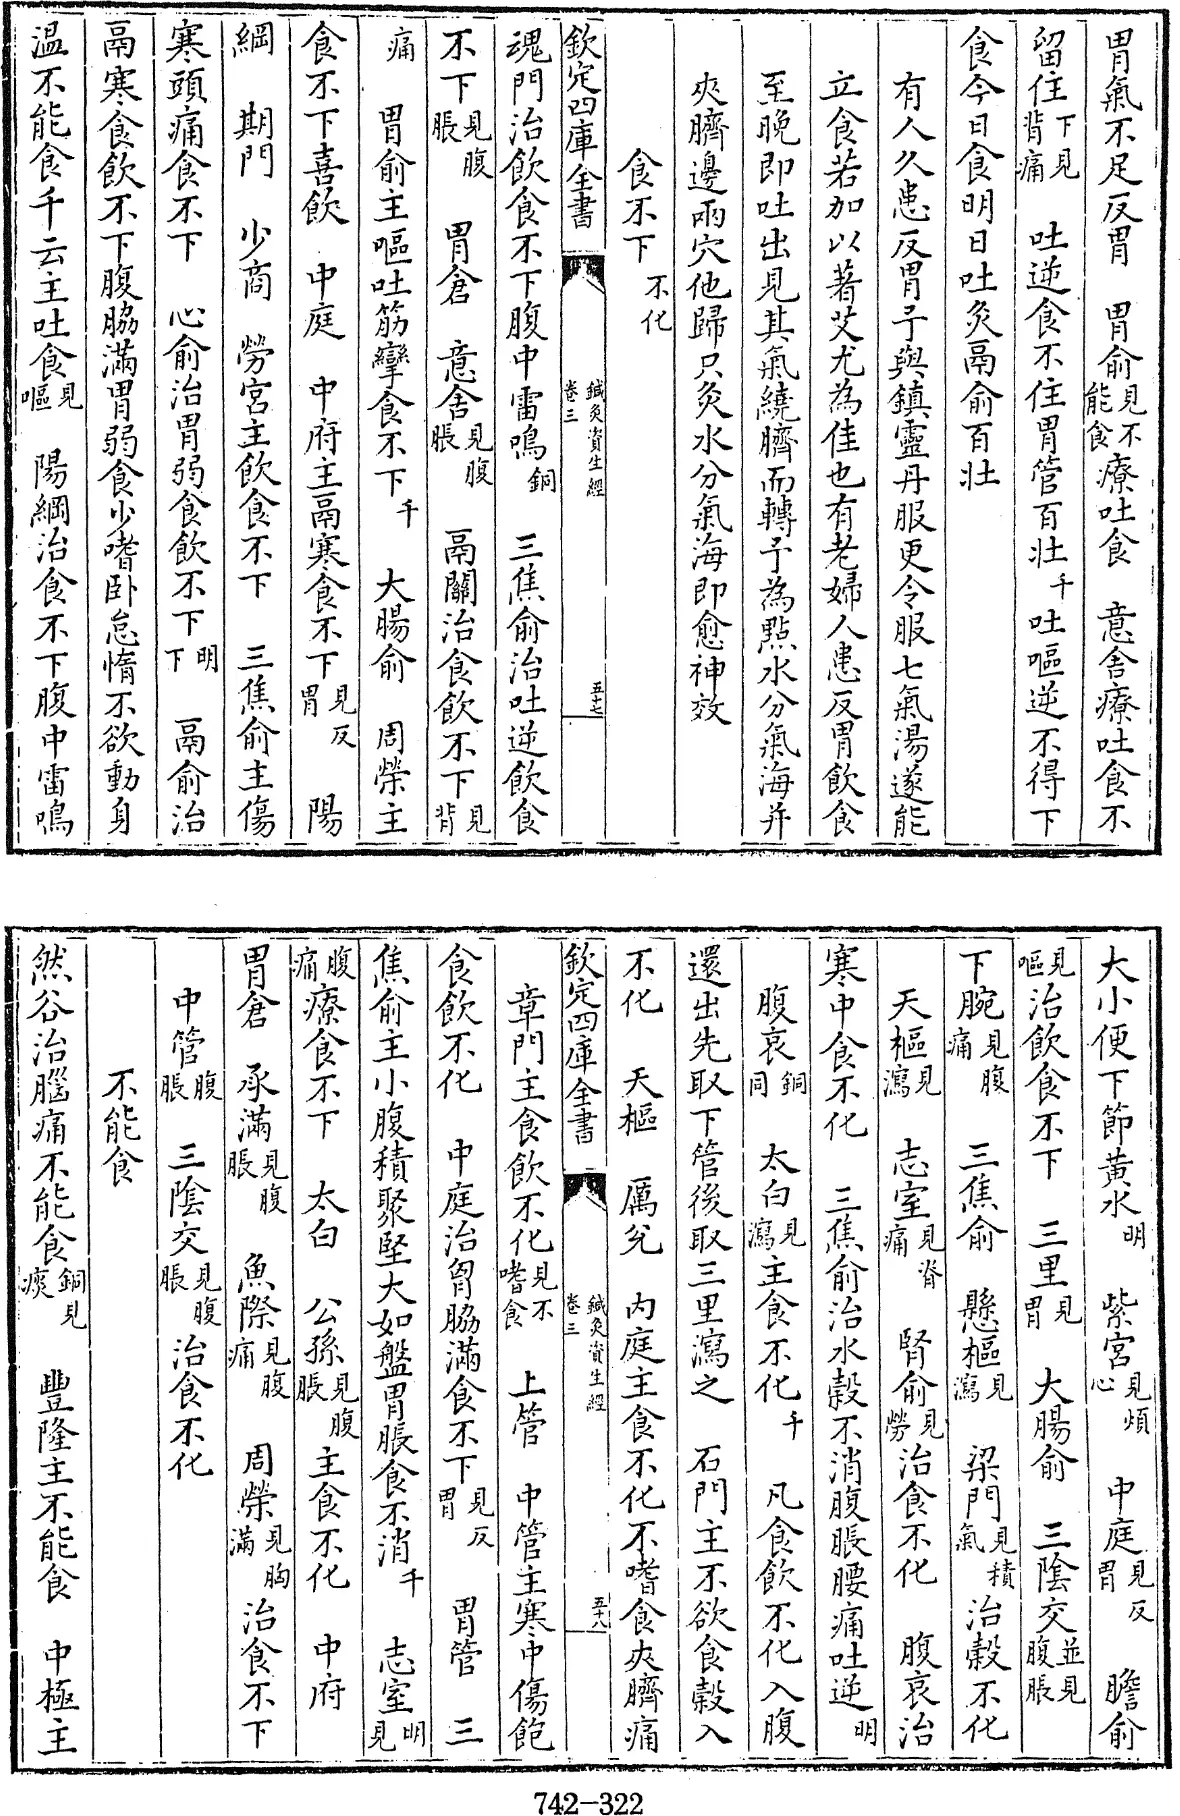 胃氣不足反胃　胃俞見不能食療吐食　意舍療吐食不
留住見下背痛　吐逆食不住胃管百壯千　吐嘔逆不得下
食今日食明日吐灸鬲俞百壯
有人久患反胃予與鎮靈丹服更令服七氣湯遂能
立食若加以著艾尤為佳也有老婦人患反胃飲食
至晚即吐出見其氣繞臍而轉予為點水分氣海并
夾臍邊兩穴他歸只灸水分氣海即愈神效
食不下不化
欽定四庫全書　鍼灸資生經卷三　五十七
魂門治飲食不下腹中雷鳴銅　三焦俞治吐逆飲食
不下見腹脹　胃倉　意舍見腹脹　鬲關治食飲不下見背
痛　胃俞主嘔吐筋攣食不下千　大腸俞　周榮主
食不下喜飲　中庭　中府主鬲寒食不下見反胃　陽
綱　期門　少商　勞宮主飲食不下　三焦俞主傷
寒頭痛食不下　心俞治胃弱食飲不下明下　鬲俞治
鬲寒食飲不下腹脇滿胃弱食少嗜卧怠惰不欲動身
温不能食千云主吐食見嘔　陽綱治食不下腹中雷鳴
大小便下節黄水明　紫宮見煩心　中庭見反胃　膽俞
見嘔治飲食不下　三里見胃　大腸俞　三陰交並見腹脹
下腕見腹痛　三焦俞　懸樞見瀉　梁門見積氣治穀不化
天樞見瀉　志室見脊痛　腎俞見勞治食不化　腹哀治
寒中食不化　三焦俞治水穀不消腹脹腰痛吐逆明
腹哀銅同　太白見瀉主食不化千　凡食飲不化入腹
還出先取下管後取三里瀉之　石門主不欲食穀入
不化　天樞　厲兌　内庭主食不化不嗜食夾臍痛
欽定四庫全書　鍼灸資生經卷三　五十八
章門主食飲不化見不嗜食　上管　中管主寒中傷飽
食飲不化　中庭治胷脇滿食不下見反胃　胃管　三
焦俞主小腹積聚堅大如盤胃脹食不消千　志室明見
腹痛療食不下　太白　公孫見腹脹主食不化　中府
胃倉　承滿見腹脹　魚際見腹痛　周榮見胸滿治食不下
中管腹脹　三陰交見腹脹治食不化
不能食
然谷治腦痛不能食銅見痰　豐隆主不能食　中極主
742-322